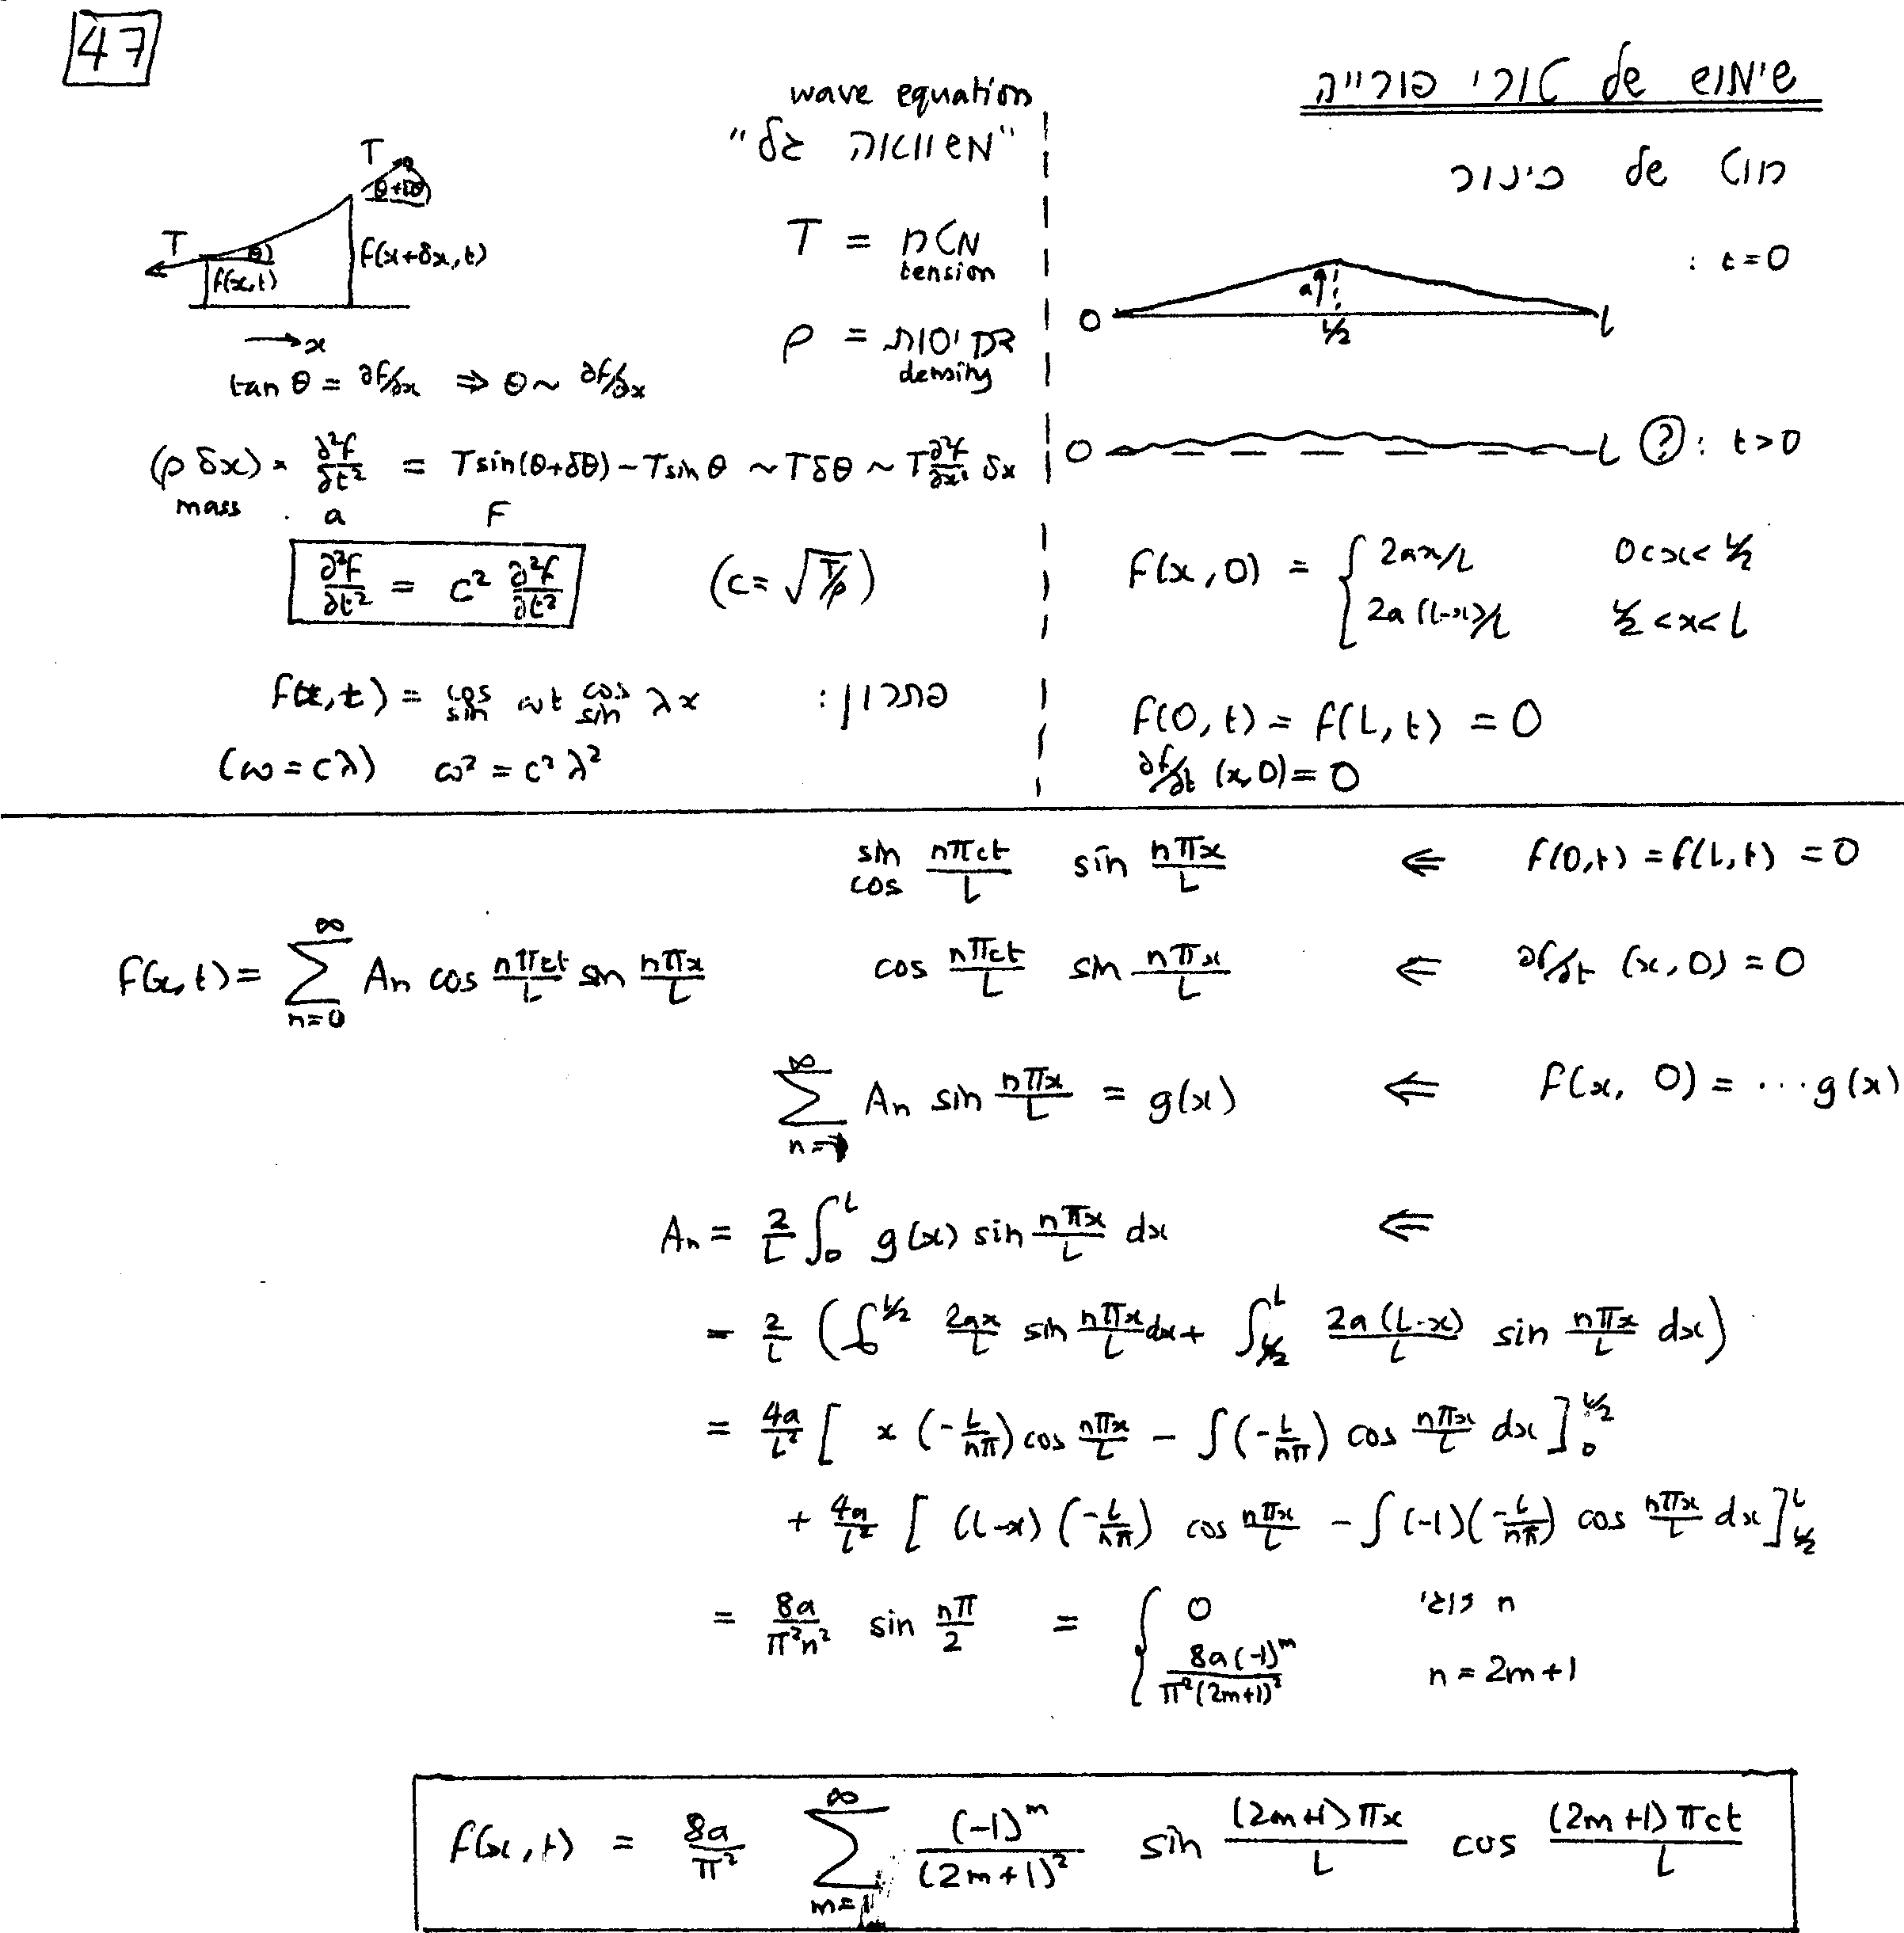 47
שימוש של טורי פורייה
חוט של כינור
: t=0
a
0 L/2 L
0 L ? : t>0
f(x,0) = { 2ax/L 0<x<L/2
2a(L-x)/L L/2<x<L
f(0,t) = f(L,t) = 0
∂f/∂t (x,0) = 0
wave equation
"משוואה גל"
T = מתח
tension
ρ = דחיסות
density
T
θ+δθ
T θ f(x+δx,t)
f(x,t)
→x
tan θ = ∂f/∂x ⇒ θ ~ ∂f/∂x
(ρ δx) × ∂²f/∂t² = T sin(θ+δθ) - T sin θ ~ T δθ ~ T ∂²f/∂x² δx
mass a F
∂²f/∂t² = c² ∂²f/∂t² (c = √(T/ρ))
f(x,t) = cos sin ωt cos sin λx פתרון:
(ω = cλ) ω² = c²λ²
sin cos nπct/L sin nπx/L ⇐ f(0,t) = f(L,t) = 0
f(x,t) = ∑_{n=0}^{∞} An cos nπct/L sin nπx/L cos nπct/L sin nπx/L ⇐ ∂f/∂t (x,0) = 0
∑_{n=1}^{∞} An sin nπx/L = g(x) ⇐ f(x, 0) = ··· g(x)
An = 2/L ∫_0^L g(x) sin nπx/L dx ⇐
= 2/L ( ∫_0^{L/2} 2ax/L sin nπx/L dx + ∫_{L/2}^L 2a(L-x)/L sin nπx/L dx )
= 4a/L² [ x (-L/nπ) cos nπx/L - ∫ (-L/nπ) cos nπx/L dx ]_0^{L/2}
+ 4a/L² [ (L-x) (-L/nπ) cos nπx/L - ∫ (-1)(-L/nπ) cos nπx/L dx ]_{L/2}^L
= 8a/π²n² sin nπ/2 = { 0 n זוגי
8a(-1)^m/π²(2m+1)² n = 2m+1
f(x,t) = 8a/π² ∑_{m=}^{∞} (-1)^m/(2m+1)² sin (2m+1)πx/L cos (2m+1)πct/L